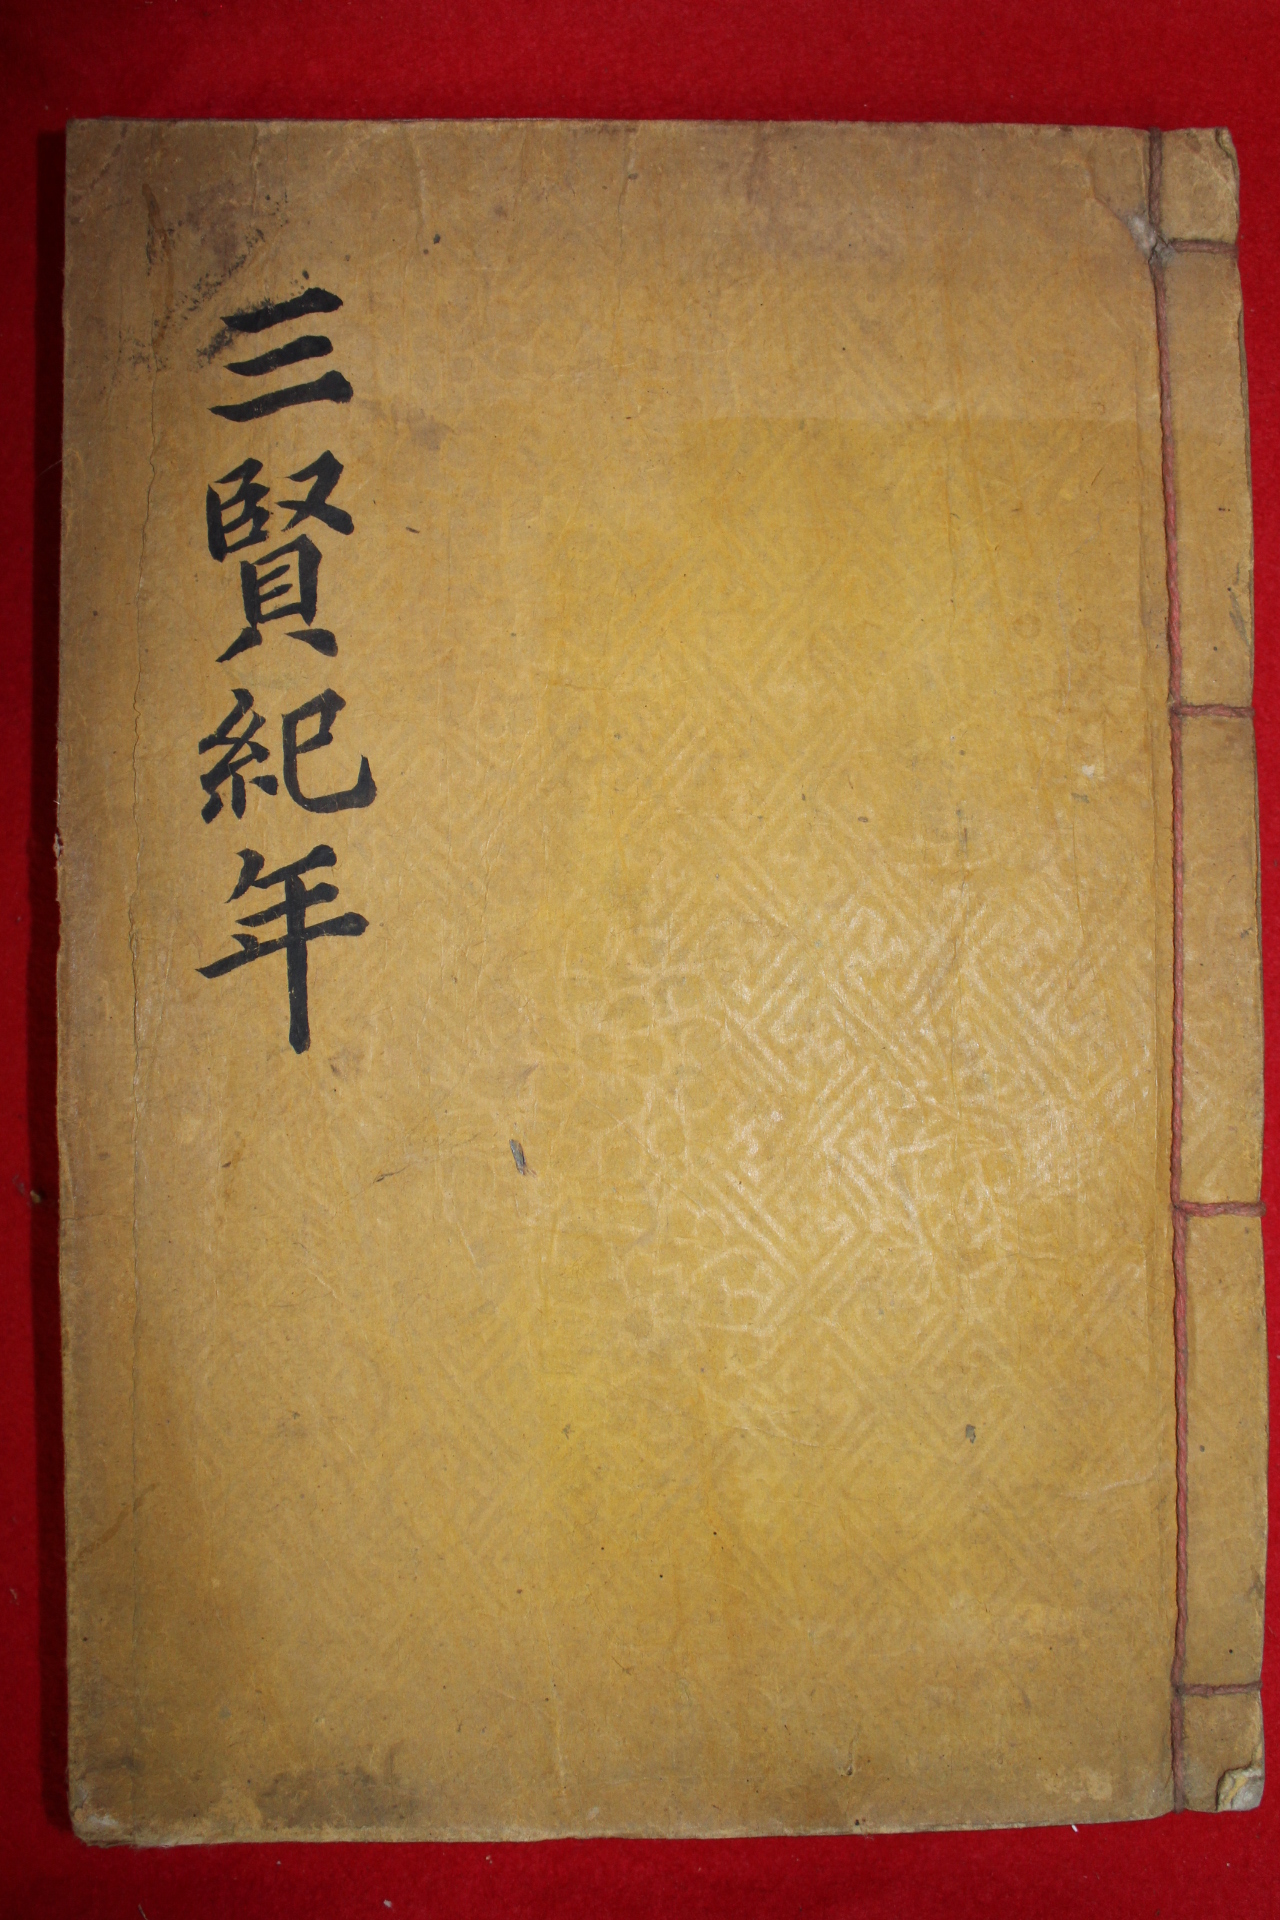 三賢紀年